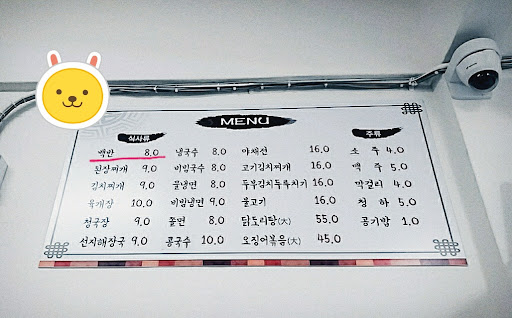 MENU
식사류
주류
백반 8.0 냉국수 8.0 야채전 16.0 소주 4.0
된장찌개 9.0 비빔국수 9.0 고기김치찌개 16.0 맥주 5.0
김치찌개 9.0 물냉면 9.0 두부김치두루치기 16.0 막걸리 4.0
육개장 10.0 비빔냉면 9.0 불고기 16.0 청하 5.0
청국장 9.0 쫄면 9.0 닭도리탕(大) 55.0 공기밥 1.0
선지해장국 9.0 콩국수 10.0 오징어볶음(大) 45.0